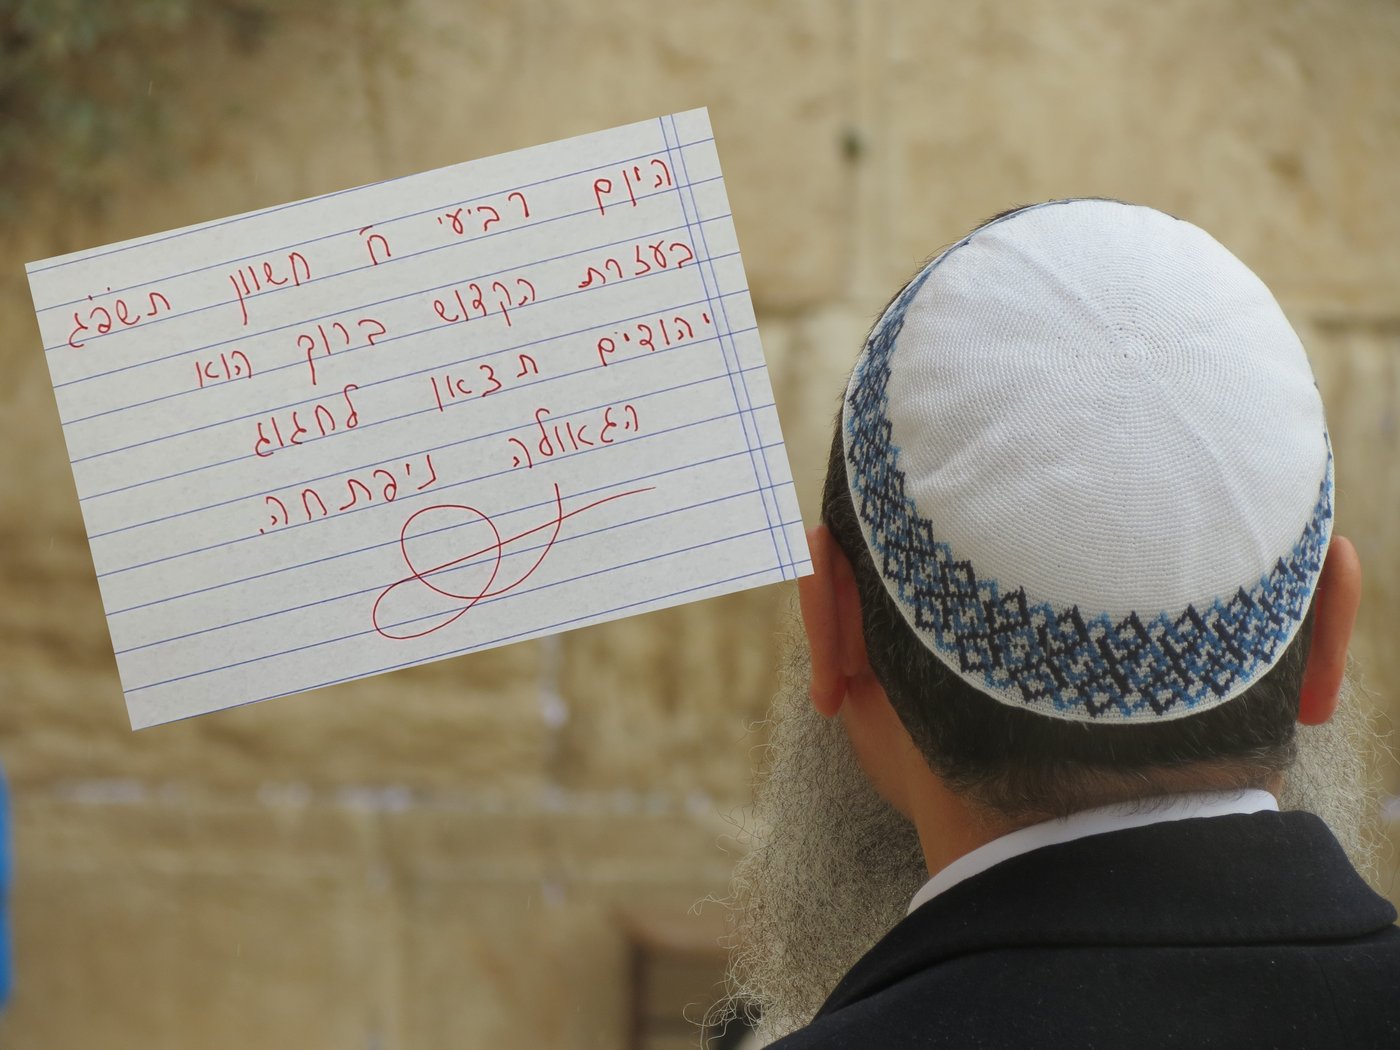 היום רביעי ח חשוון תשפ״ג
בעזרת הקדוש ברוך הוא
יהודים תצאו לחגוג
הגאולה ניפתחה.